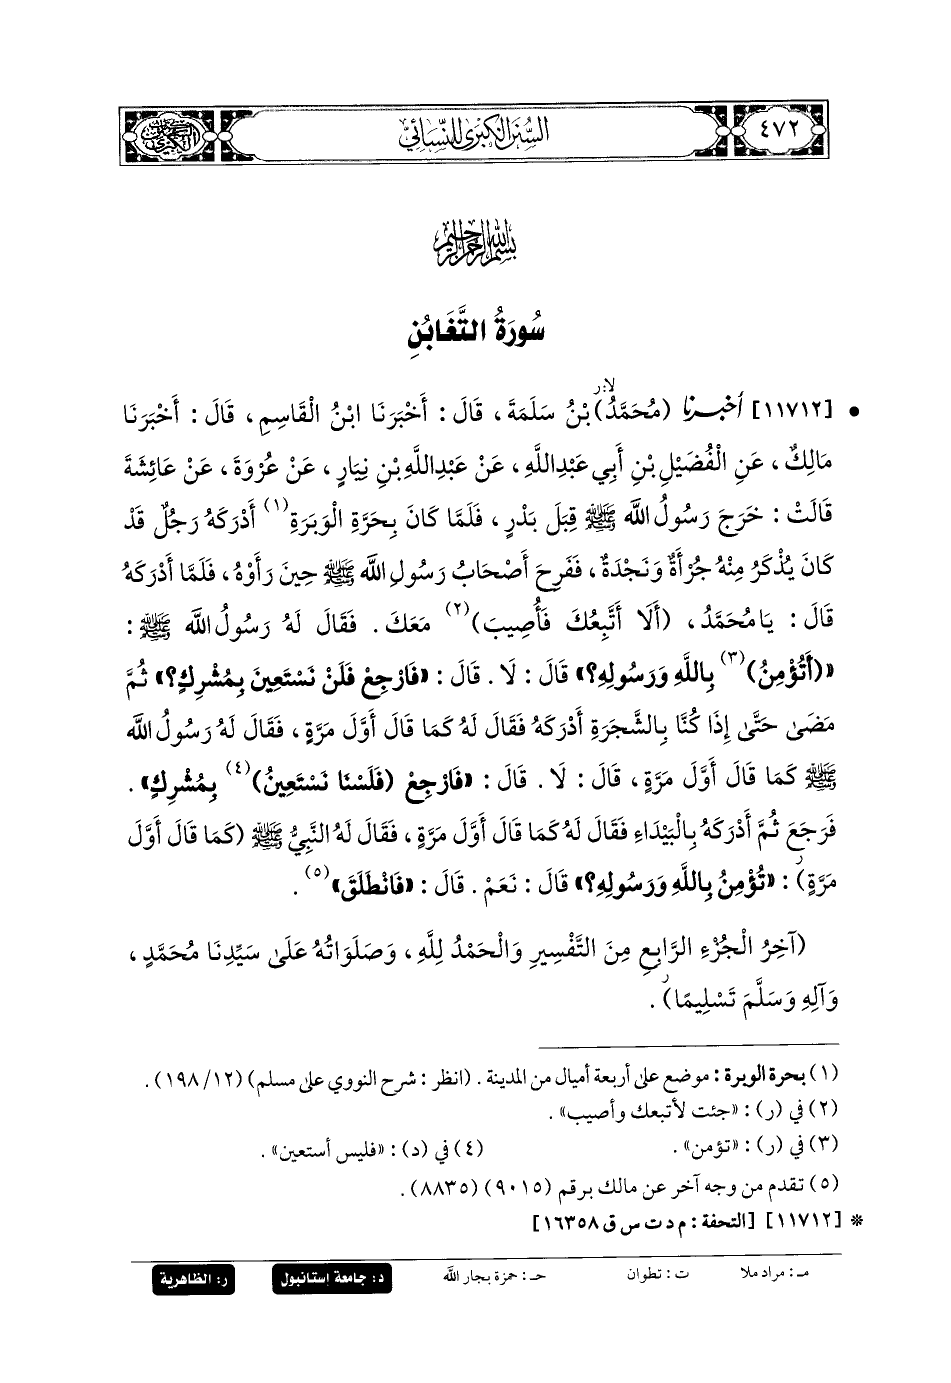 ٤٧٢
السنن الكبرى للنسائي
بسم الله الرحمن الرحيم
سُورَةُ التَّغَابُنِ
• [١١٧١٢] أخبرنا (مُحَمَّدُ) بْنُ سَلَمَةَ، قَالَ: أَخْبَرَنَا ابْنُ الْقَاسِمِ، قَالَ: أَخْبَرَنَا
مَالِكٌ، عَنِ الْفُضَيْلِ بْنِ أَبِي عَبْدِاللَّهِ، عَنْ عَبْدِاللَّهِ بْنِ نِيَارٍ، عَنْ عُرْوَةَ، عَنْ عَائِشَةَ
قَالَتْ: خَرَجَ رَسُولُ اللَّه ﷺ قِبَلَ بَدْرٍ، فَلَمَّا كَانَ بِحَرَّةِ الْوَبَرَةِ(١) أَدْرَكَهُ رَجُلٌ قَدْ
كَانَ يُذْكَرُ مِنْهُ جُرْأَةٌ وَنَجْدَةٌ، فَفَرِحَ أَصْحَابُ رَسُولِ اللَّه ﷺ حِينَ رَأَوْهُ، فَلَمَّا أَدْرَكَهُ
قَالَ: يَا مُحَمَّدُ، (أَلَا أَتَّبِعُكَ فَأُصِيبَ)(٢) مَعَكَ. فَقَالَ لَهُ رَسُولُ اللَّه ﷺ:
«(أَتُؤْمِنُ)(٣) بِاللَّهِ وَرَسُولِهِ؟» قَالَ: لَا. قَالَ: «فَارْجِعْ فَلَنْ نَسْتَعِينَ بِمُشْرِكٍ؟» ثُمَّ
مَضَىٰ حَتَّىٰ إِذَا كُنَّا بِالشَّجَرَةِ أَدْرَكَهُ فَقَالَ لَهُ كَمَا قَالَ أَوَّلَ مَرَّةٍ، فَقَالَ لَهُ رَسُولُ اللَّه
ﷺ كَمَا قَالَ أَوَّلَ مَرَّةٍ، قَالَ: لَا. قَالَ: «فَارْجِعْ (فَلَسْنَا نَسْتَعِينُ)(٤) بِمُشْرِكٍ».
فَرَجَعَ ثُمَّ أَدْرَكَهُ بِالْبَيْدَاءِ فَقَالَ لَهُ كَمَا قَالَ أَوَّلَ مَرَّةٍ، فَقَالَ لَهُ النَّبِيُّ ﷺ (كَمَا قَالَ أَوَّلَ
مَرَّةٍ): «تُؤْمِنُ بِاللَّهِ وَرَسُولِهِ؟» قَالَ: نَعَمْ. قَالَ: «فَانْطَلَقَ»(٥).
(آخِرُ الْجُزْءِ الرَّابِعِ مِنَ التَّفْسِيرِ وَالْحَمْدُ لِلَّهِ، وَصَلَوَاتُهُ عَلَىٰ سَيِّدِنَا مُحَمَّدٍ،
وَآلِهِ وَسَلَّمَ تَسْلِيمًا).
(١) بحرة الوبرة: موضع على أربعة أميال من المدينة. (انظر: شرح النووي على مسلم) (١٢/ ١٩٨).
(٢) في (ر): «جئت لأتبعك وأصيب».
(٣) في (ر): «تؤمن». (٤) في (د): «فليس أستعين».
(٥) تقدم من وجه آخر عن مالك برقم (٩٠١٥) (٨٨٣٥).
* [١١٧١٢] [التحفة: م د ت س ق ١٦٣٥٨]
مـ: مراد ملا ت: تطوان حـ: حمزة بجار الله د: جامعة إستانبول ر: الظاهرية